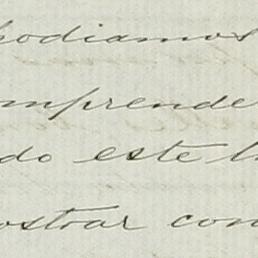 podiamos
mprende
do este
ostrar con